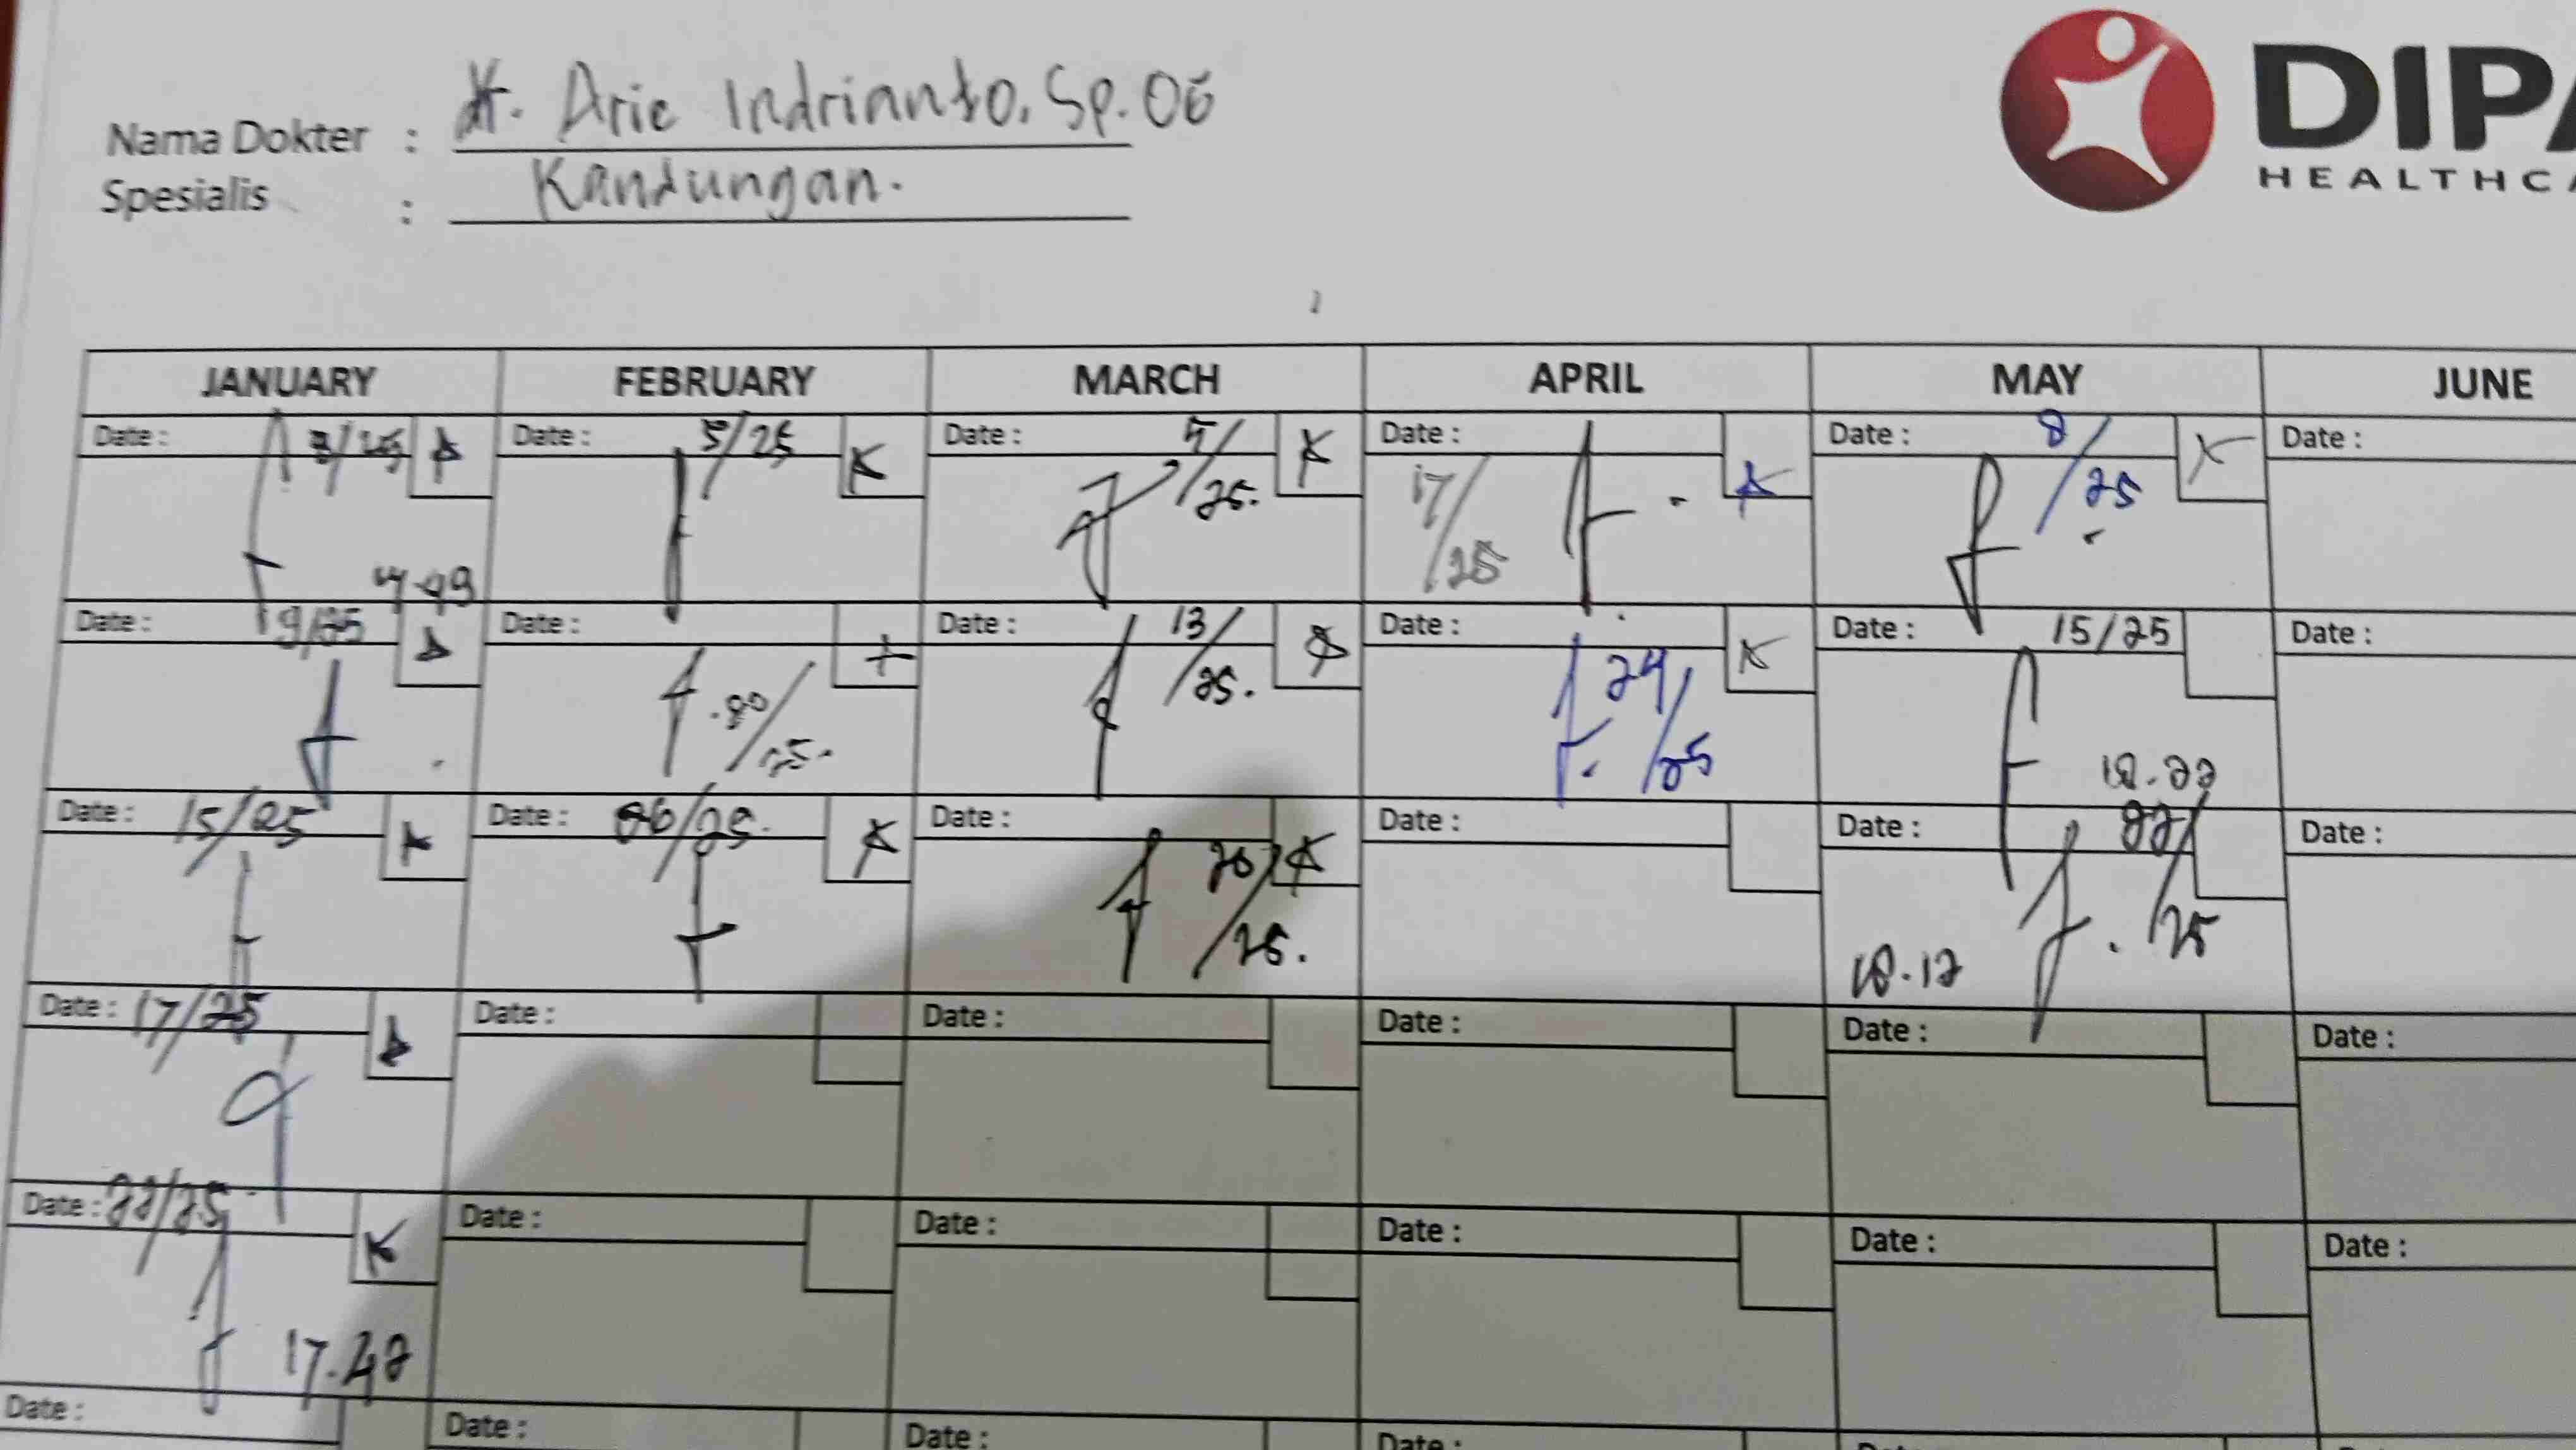 Nama Dokter : dr. Arie Indrianto, Sp.OG
Spesialis : Kandungan.
DIPA
HEALTHCA
JANUARY FEBRUARY MARCH APRIL MAY JUNE
Date : Date : 5/25 K Date : 5/25. K Date : 17/25 Date : 8/25 K Date :
Date : 9/25 Date : Date : 13/25. Date : 24/25 K Date : 15/25 Date :
Date : 15/25 Date : 26/25. Date : 20/25. Date : Date : 22/25 18.17 Date :
Date : 17/25 Date : Date : Date : Date : Date :
Date : 22/25 K 17.42 Date : Date : Date : Date : Date :
Date : Date : Date : Date :